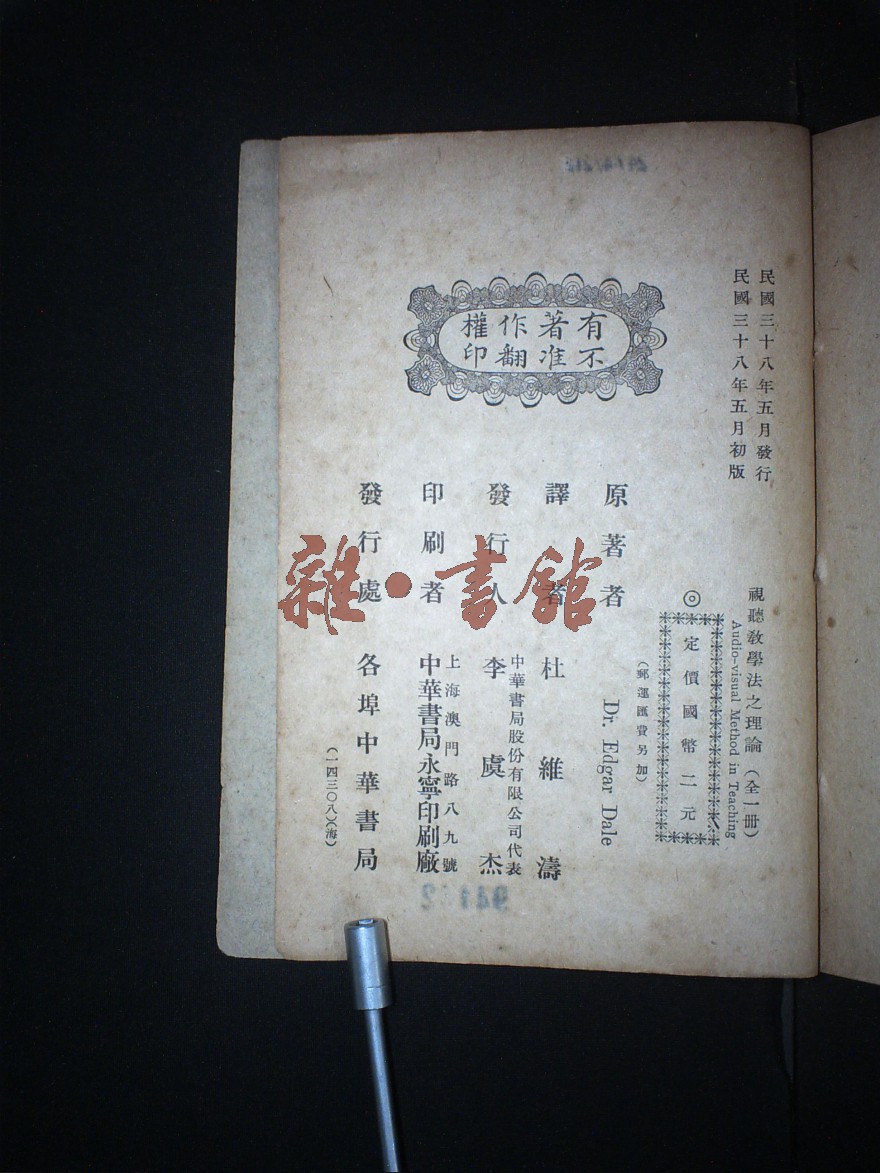 民國三十八年五月發行
民國三十八年五月初版
有著作權
不准翻印
視聽教學法之理論（全一冊）
Audio-visual Method in Teaching
◎定價國幣二元
（郵運匯費另加）
原著者 Dr. Edgar Dale
譯者 杜維濤
發行人 中華書局股份有限公司代表
李虞杰
印刷者 上海澳門路八九號
中華書局永寧印刷廠
發行處 各埠中華書局
（一四三〇八）（海）
雜·書館